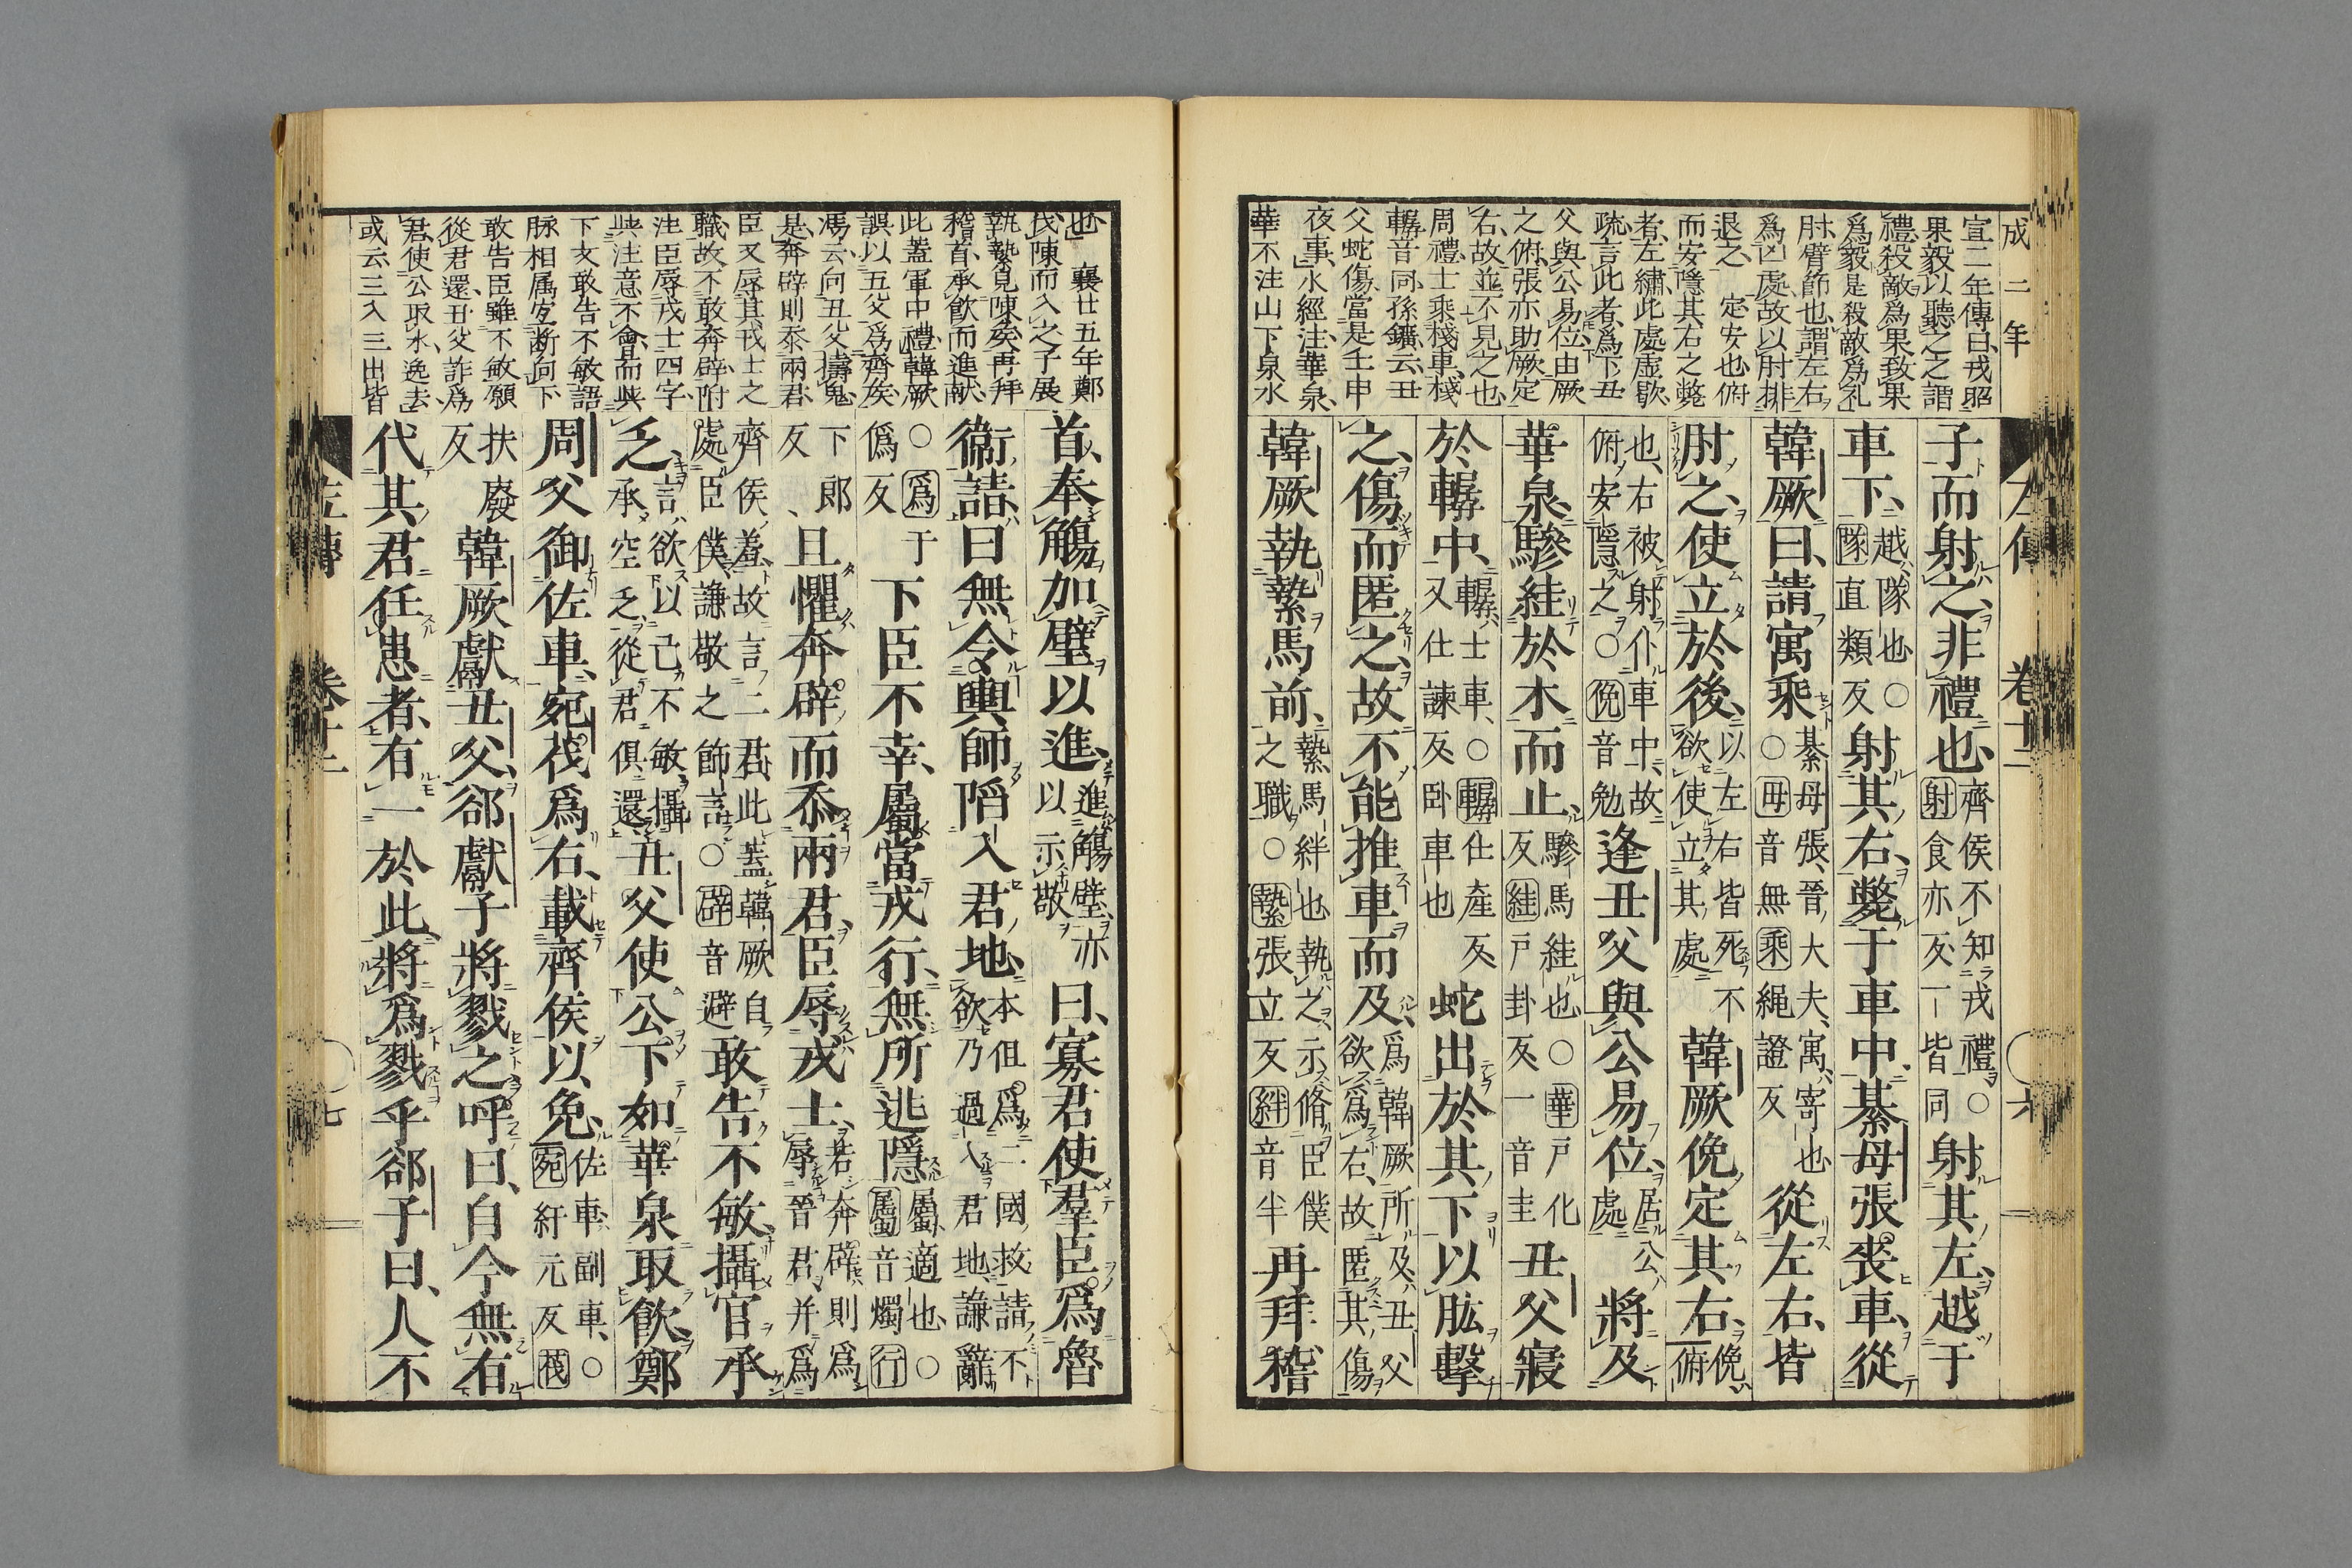 成二年
宣二年傳曰戎昭
果毅以聽之之謂
禮殺敵爲果致果
爲毅是殺敵爲礼
肘臂節也謂左右
爲凶處故以肘排
退之　定安也俯
而安隱其右之斃
者左繡此處虛歇
疏言此者爲下丑
父與公易位由厥
之俯張亦助厥定
右故並不見之也
周禮士乘棧車棧
轏音同孫鑛云丑
父蛇傷當是壬申
夜事水經注華泉
華不注山下泉水
左傳　卷十二　六
子而射之、非禮也、齊侯不知戎禮○射食亦反一皆同射其左、越于
車下、越隊也○隊直類反射其右、斃于車中、綦毋張喪車、從
韓厥曰、請寓乘綦毋張、晉大夫、寓寄也○毋音無乘繩證反從左右、皆
肘之、使立於後、以左右皆死不欲使立其處韓厥俛定其右、俛俯
也、右被射仆車中、故俯安隱之○俛音勉逢丑父與公易位、居公處將及
華泉、驂絓於木而止、驂馬絓也○華戶化反絓戶卦反一音圭丑父寢
於轏中、轏士車、○轏仕產反又仕諫反卧車也蛇出於其下以肱擊
之、傷而匿之、故不能推車而及、爲韓厥所及丑父欲爲右、故匿其傷
韓厥執縶馬前、縶馬絆也執之示脩臣僕之職○縶張立反絆音半再拜稽
也　襄廿五年鄭
伐陳而入之子展
執縶見陳矦再拜
稽首承飲而進献
此蓋軍中禮韓厥
誤以丑父爲齊矦
馮云向丑父擣鬼
是奔辟則忝兩君
臣又辱其戎士之
職故不敢奔辟附
注臣辱戎士四字
與注意不會而與
下文敢告不敏語
脉相属定断向下
敢告臣雖不敏願
從君還丑父詐爲
君使公取水逸去
或云三入三出皆
首、奉觴加璧以進、進觴璧亦以示敬曰、寡君使羣臣爲魯
衞請、曰無令輿師陷入君地、本但爲二國救請不欲乃過入君地謙辭
○爲于僞反下臣不幸、屬當戎行、無所逃隱屬適也○屬音燭行
下郎反、且懼奔辟而忝兩君、臣辱戎士、若奔辟則爲辱晉君并爲
齊侯羞故言二君此蓋韓厥自處臣僕謙敬之飾言○辟音避敢告不敏攝官承
乏、言欲以己不敏攝承空乏從君俱還丑父使公下如華泉取飲、鄭
周父御佐車、宛茷爲右、載齊侯以免、佐車副車○宛紆元反茷
扶廢反韓厥獻丑父、郤獻子將戮之、呼曰、自今無有
代其君任患者、有一於此、將爲戮乎郤子曰、人不
左傳　卷十二　七